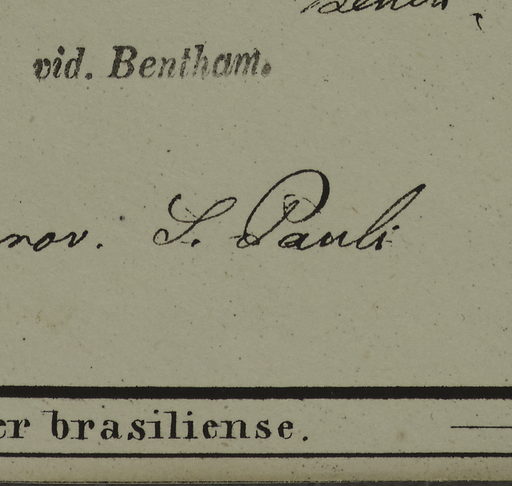 vid. Bentham.
nov. S. Pauli
er brasiliense.